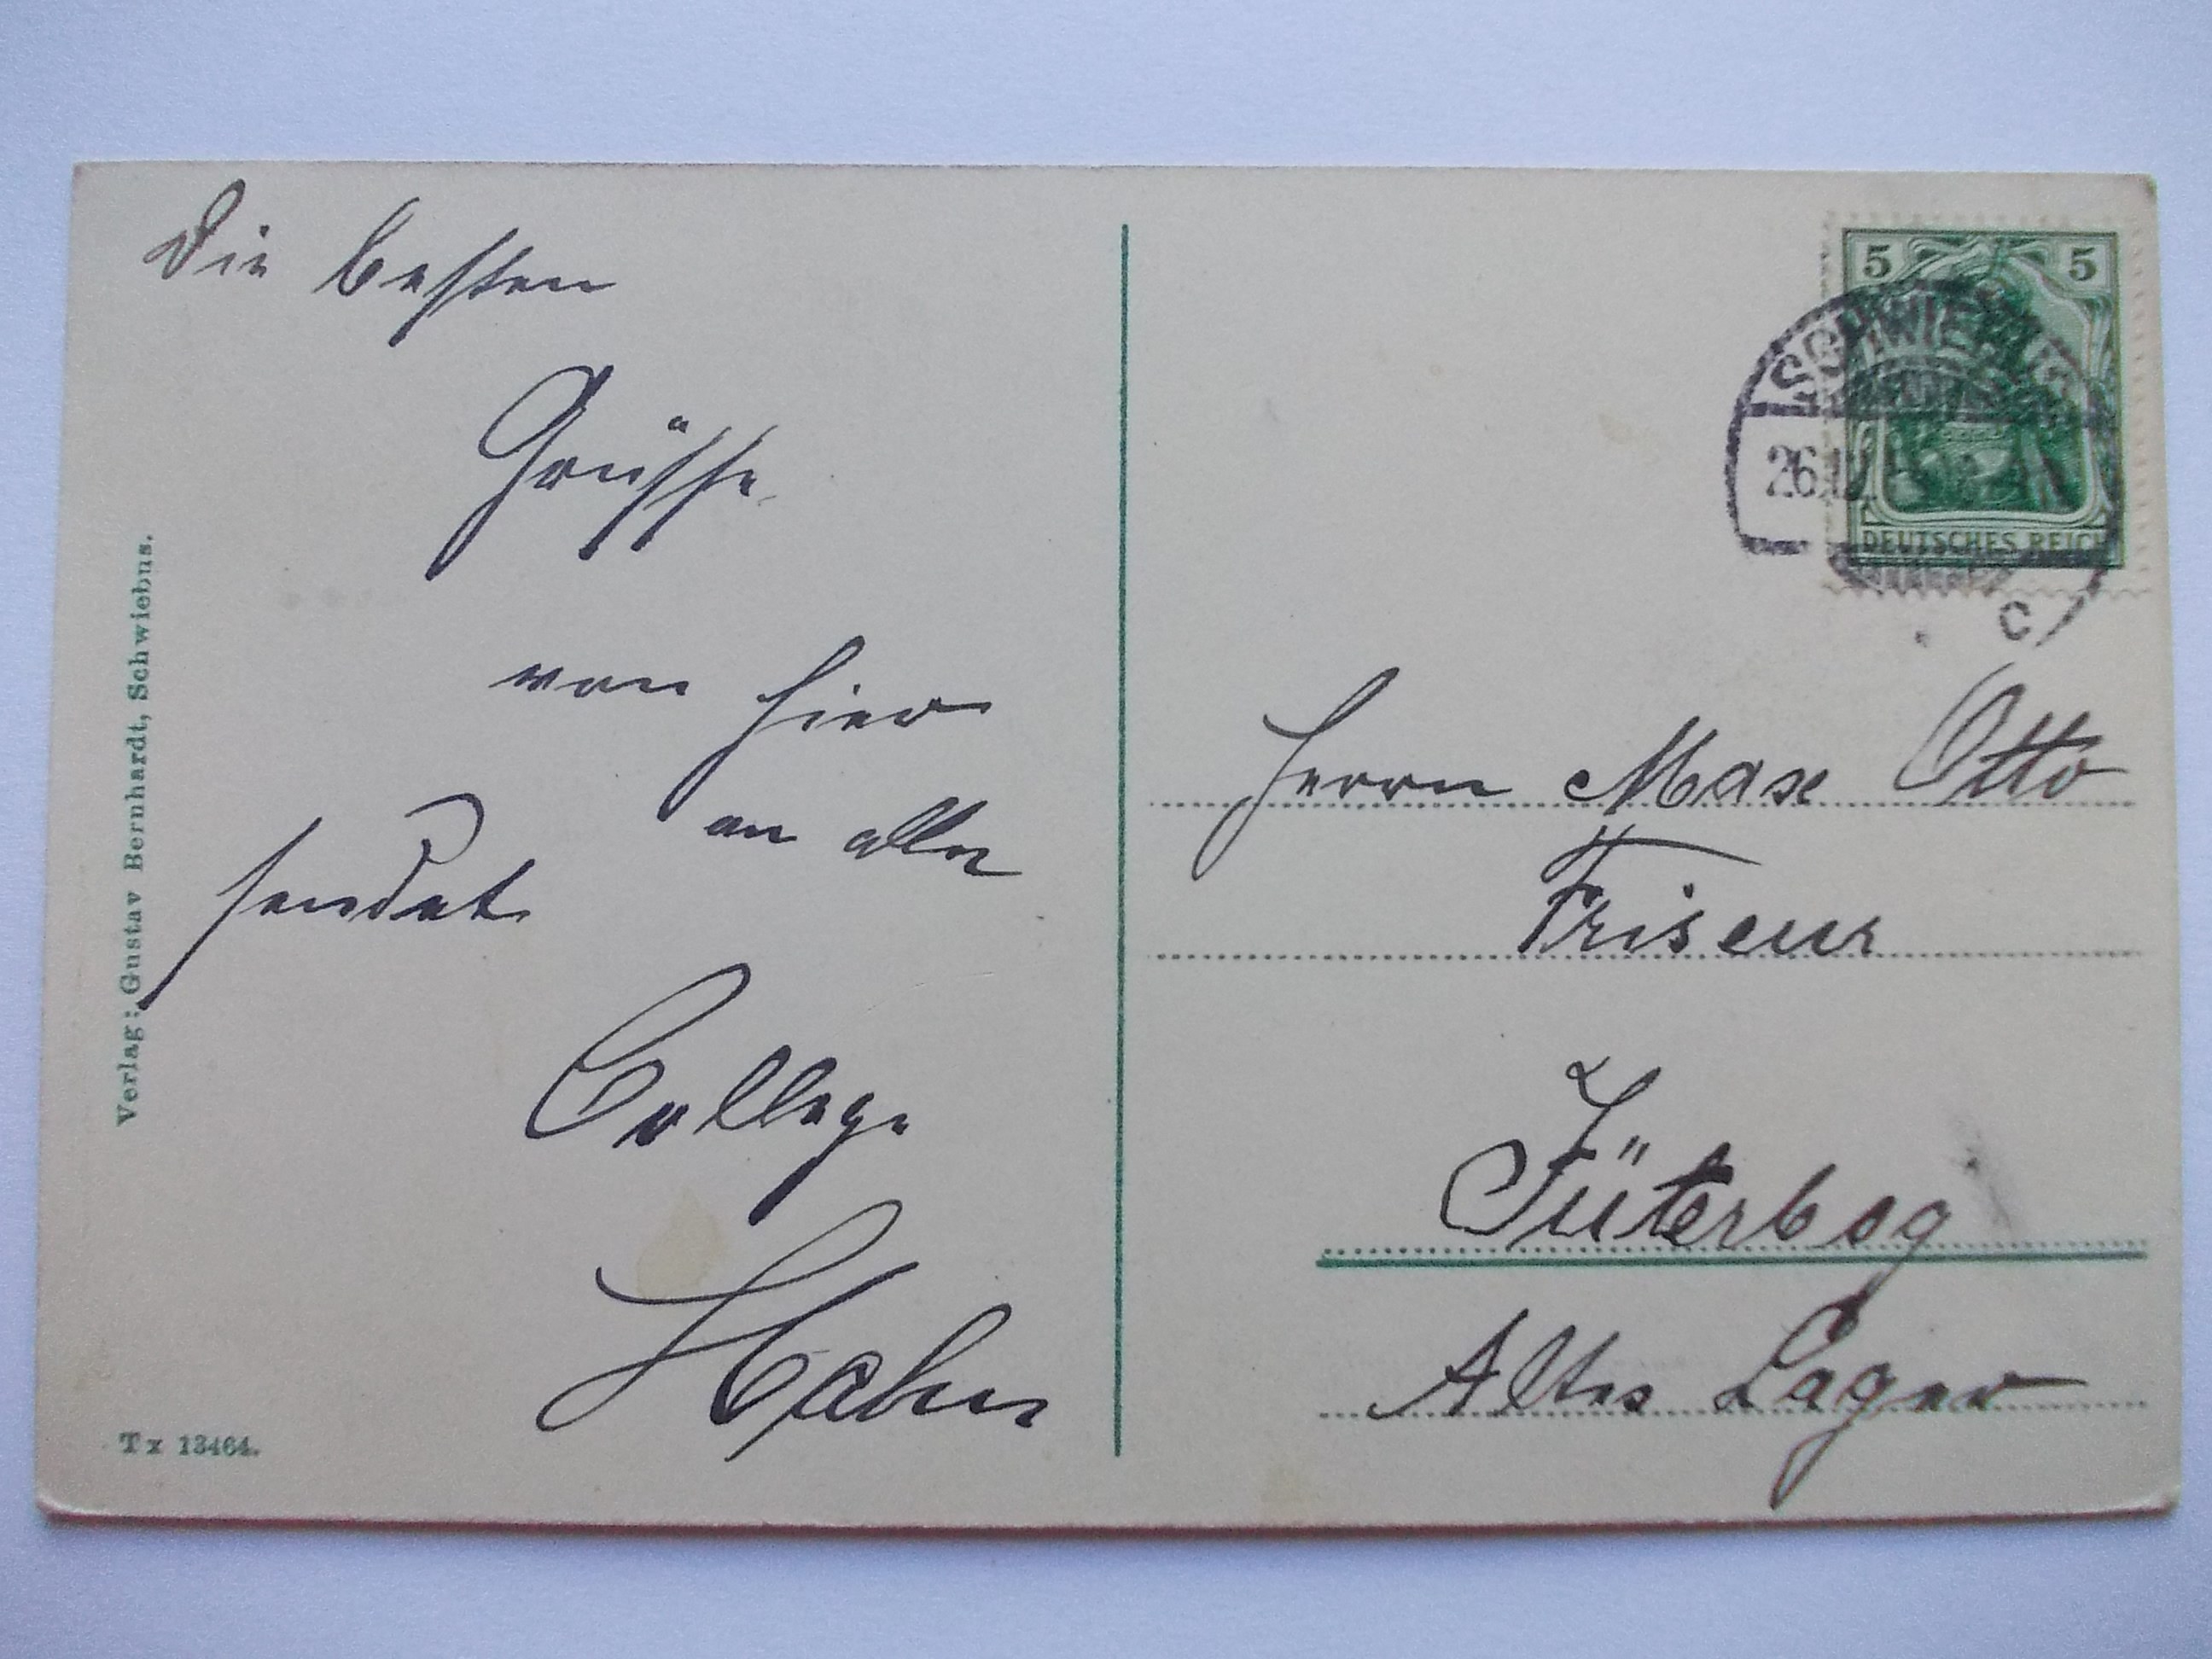 Die besten
Grüsse
von hier
an alle
sendet
College
Hahn
Verlag: Gustav Bernhardt, Schwiebus.
Tx 13464.
5 5
DEUTSCHES REICH
SCHWIEBUS
26.
c
Herrn Max Otto
Friseur
Jüterbog
Altes Lager